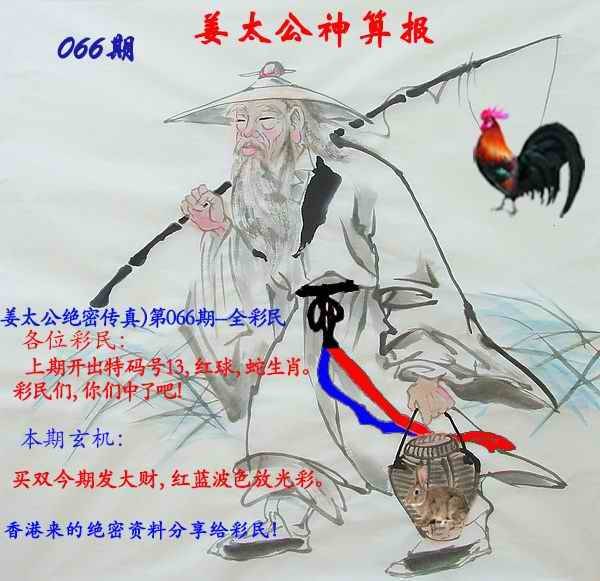 姜太公神算报
066期
姜太公绝密传真)第066期—全彩民
各位彩民:
上期开出特码号13,红球,蛇生肖。
彩民们,你们中了吧!
本期玄机:
买双今期发大财,红蓝波色放光彩。
香港来的绝密资料分享给彩民!